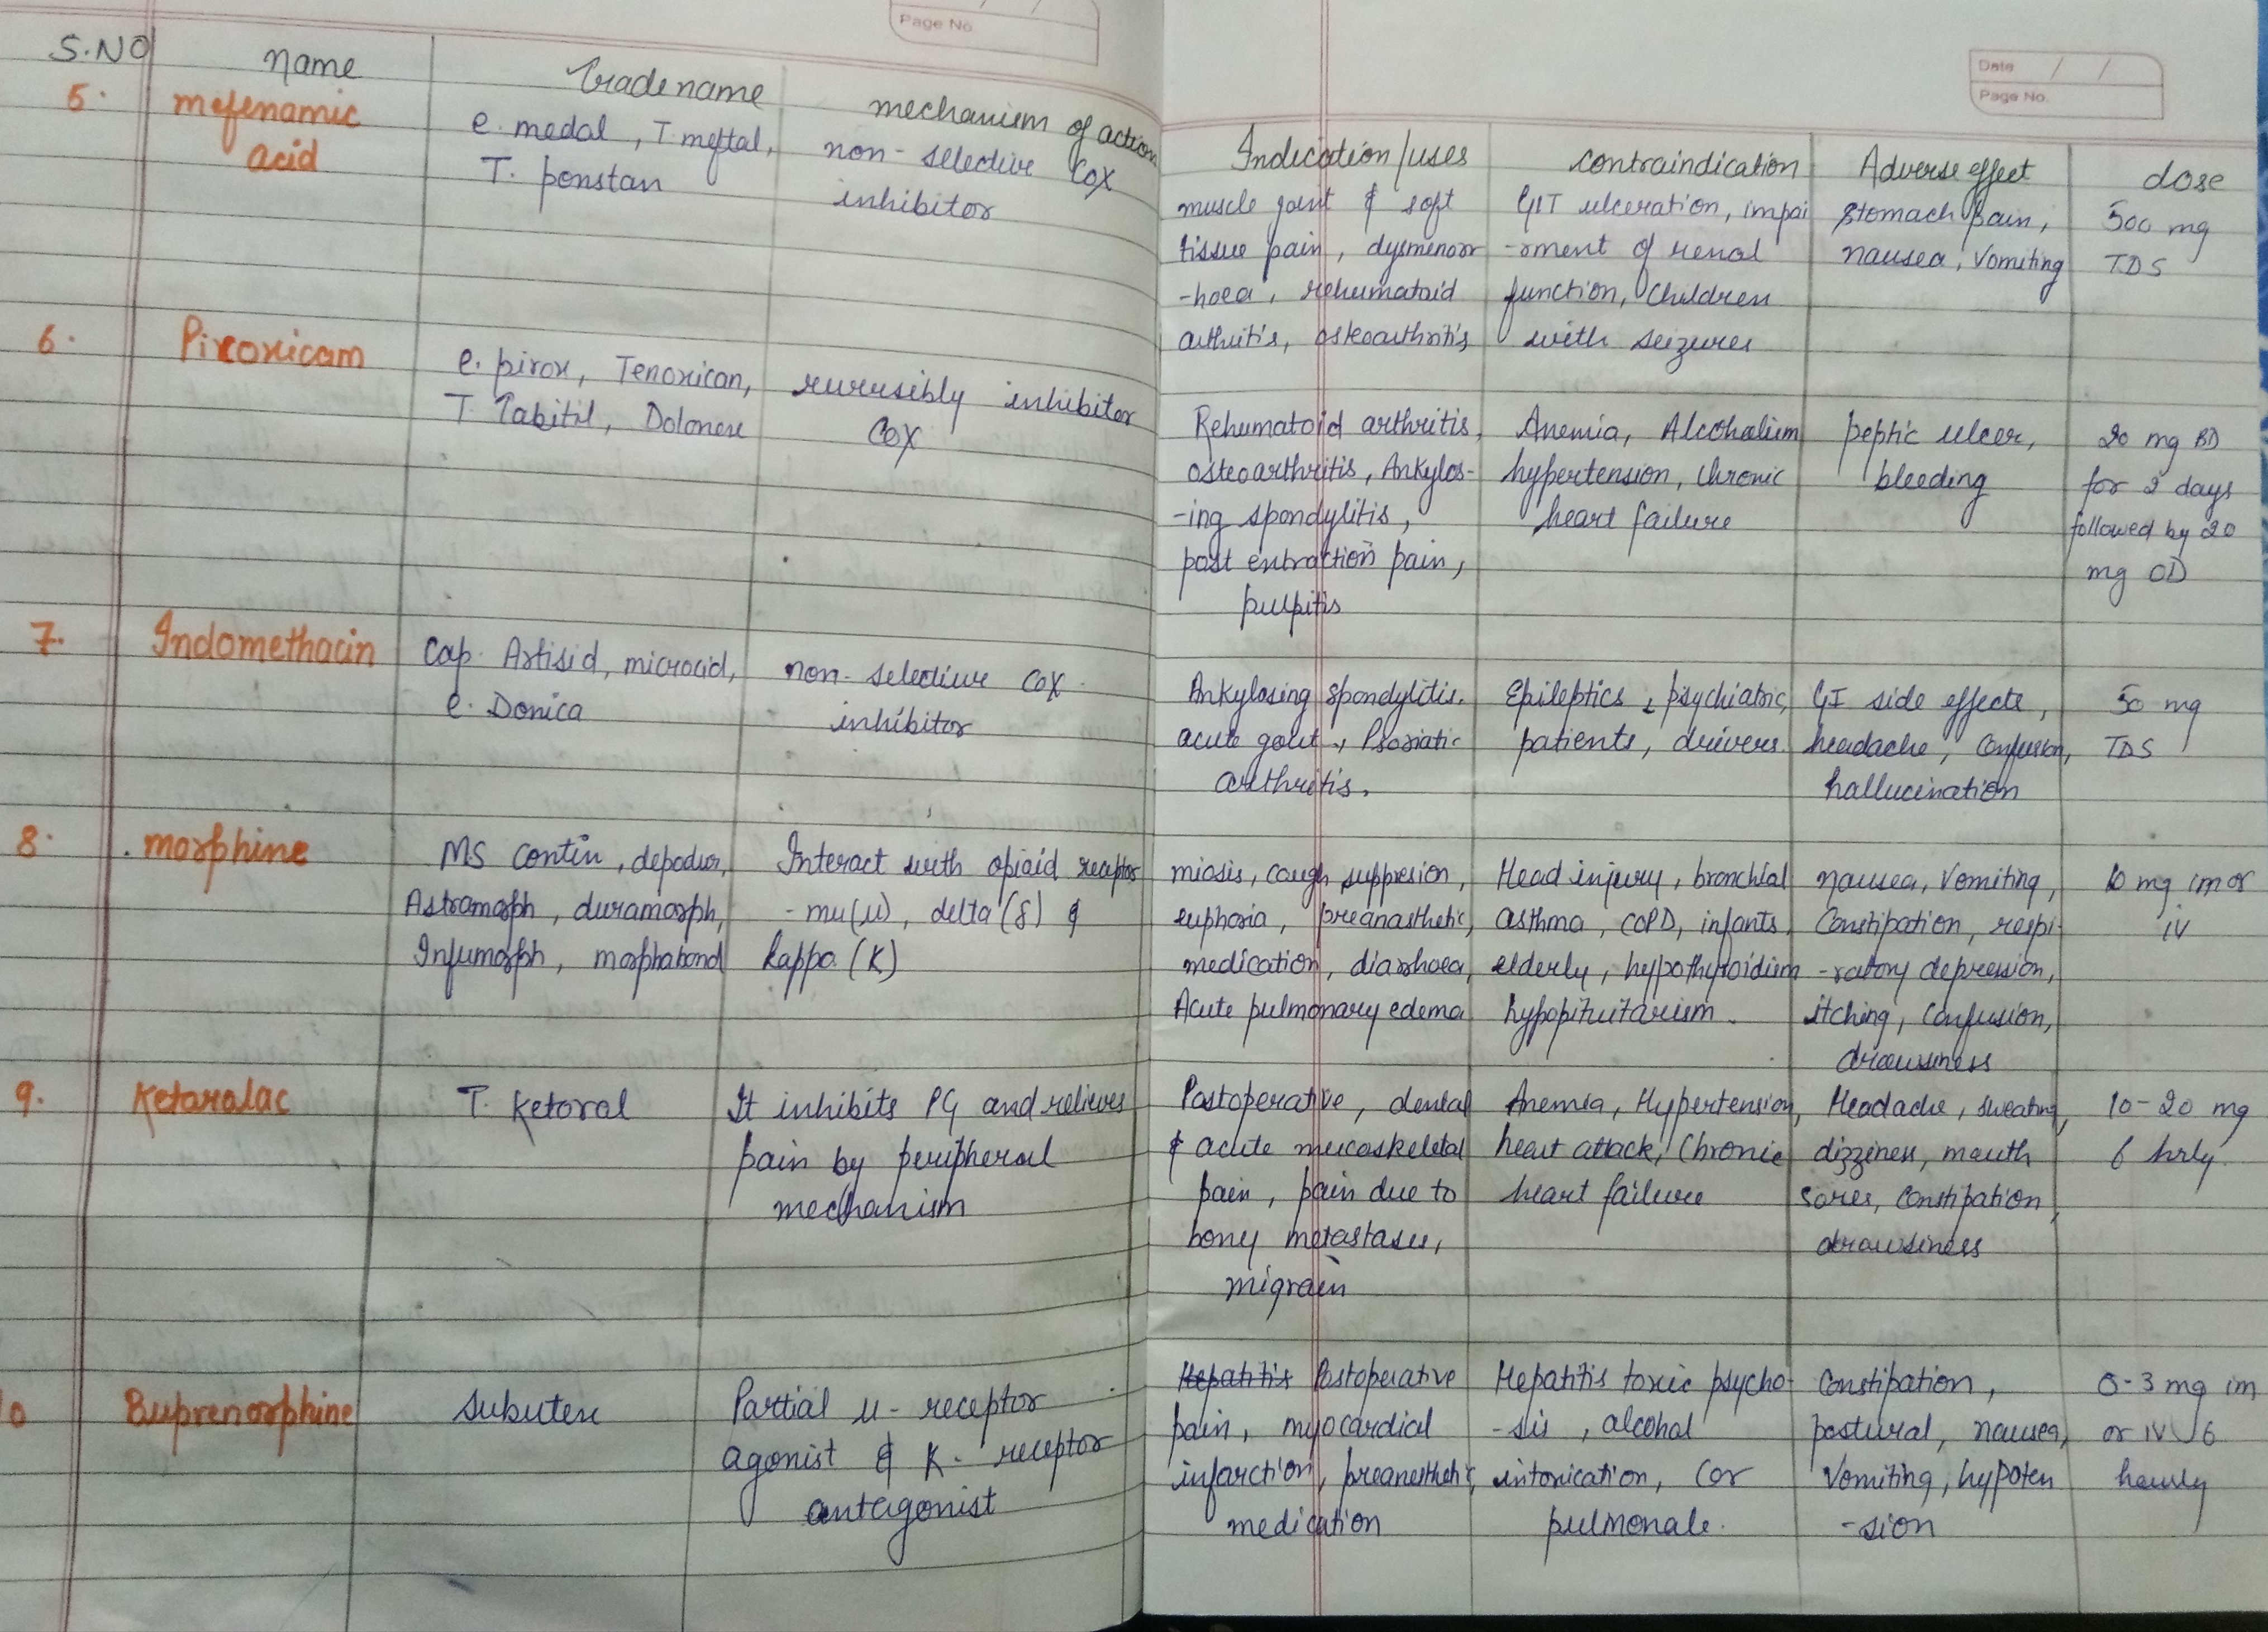 Page No.
S.NO name Tradename mechanism of action
5. mefenamic acid
e. medal, T meftal,
T. ponstan
non-selective COX
inhibitor
6. Piroxicam
e. pirox, Tenoxican,
T. Tabitil, Dolonex
reversibly inhibitor
COX
7. Indomethacin
Cap. Artisid, microcid,
e. Donica
non-selective COX
inhibitor
8. morphine
MS contin, depodur,
Astramorph, duramorph,
Infumorph, morphabond
Interact with opioid receptor
- mu(µ), delta (δ) &
kappa (K)
9. Ketorolac
T. Ketoral
It inhibits PG and relieves
pain by peripheral
mechanism
10 Buprenorphine
Subutex
Partial µ- receptor
agonist & K- receptor
antagonist
Date / /
Page No.
Indication/uses contraindication Adverse effect dose
muscle joint & soft
tissue pain, dysmenorr
-hoea, rehumatoid
arthritis, osteoarthritis
GIT ulceration, impai
-rment of renal
function, Children
with seizures
stomach pain,
nausea, vomiting
500 mg
TDS
Rehumatoid arthritis,
osteoarthritis, Ankylos-
-ing spondylitis,
post extraction pain,
pulpitis
Anemia, Alcoholism
hypertension, chronic
heart failure
peptic ulcer,
bleeding
20 mg BD
for 2 days
followed by 20
mg OD
Ankylosing spondylitis.
acute gout, Psoriatic
arthritis.
Epileptics, psychiatric,
patients, drivers
GI side effects,
headache, Confusion,
hallucination
50 mg
TDS
miosis, cough suppresion,
euphoria, preanasthetic,
medication, diarrhoea,
Acute pulmonary edema
Head injury, bronchial
asthma, COPD, infants,
elderly, hypothyroidism
hypopituitarism.
nausea, vomiting,
Constipation, respi-
-ratory depression,
itching, confusion,
drowsiness
10 mg im or
iv
Postoperative, dental
& acute muscoskeletal
pain, pain due to
bony metastases,
migrain
Anemia, Hypertension,
heart attack, Chronic
heart failure
Headache, sweating,
dizziness, mouth
sores, constipation,
drowsiness
10-20 mg
6 hrly.
Hepatitis Postoperative
pain, myocardial
infarction, preanesthetic,
medication
Hepatitis toxic psycho-
-sis, alcohol
intoxication, Cor
pulmonale.
Constipation,
postural, nausea,
vomiting, hypoten
-sion
0-3 mg im
or IV 6
hourly